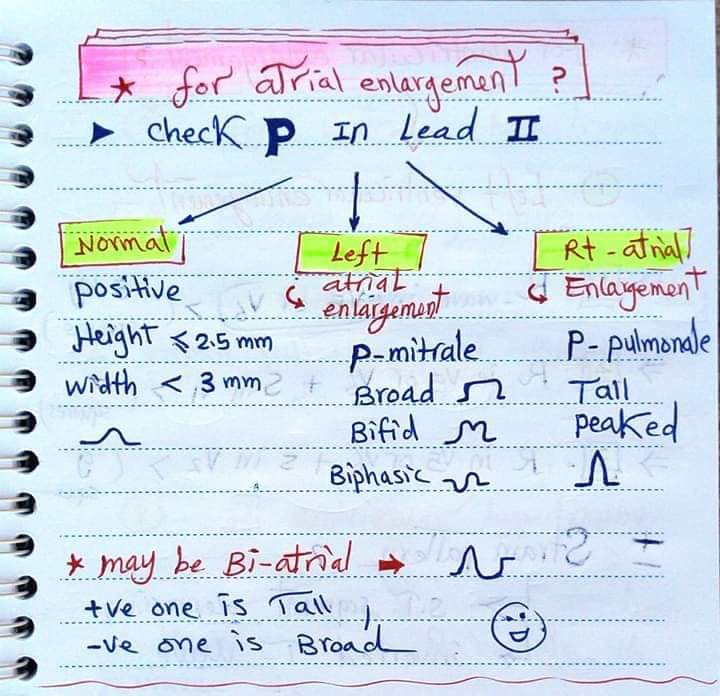 * for atrial enlargement ?
► check P in Lead II
Normal
positive
Height ⩽ 2.5 mm
width < 3 mm
Left
atrial
enlargement
P-mitrale
Broad
Bifid
Biphasic
Rt - atrial
Enlargement
P - pulmonale
Tall
peaked
* may be Bi-atrial ➡
+ve one is Tall ,
-ve one is Broad